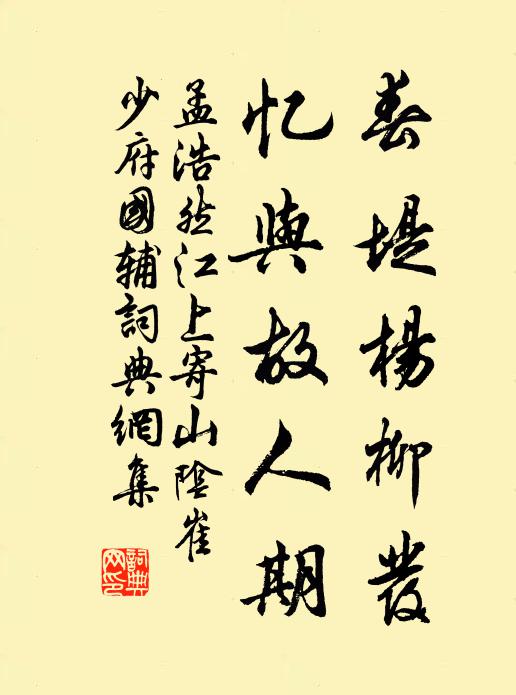 春堤楊柳發
忆與故人期
孟浩然江上寄山陰崔
少府國輔詞典網集
詞典網印